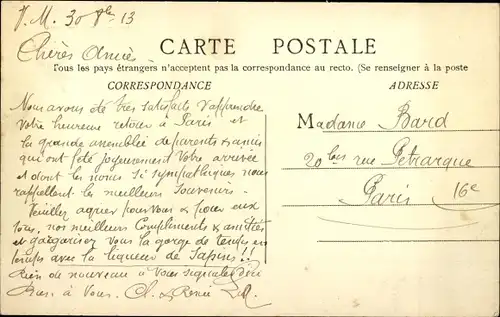 J. M. 30 8bre 13
Chères Amies
CARTE POSTALE
Tous les pays étrangers n'acceptent pas la correspondance au recto. (Se renseigner à la poste
CORRESPONDANCE
Nous avons été très satisfaits d'apprendre
Votre heureux retour à Paris et
la grande assemblée de parents & amis
qui ont fêté joyeusement Votre arrivée
et dont les noms si sympathiques nous
rappellent les meilleurs Souvenirs.
Veuillez agréer pour vous & pour eux
tous, nos meilleurs Compliments & amitiés
et gargarisez Vous la gorge de temps en
temps avec la liqueur de Sapins!!
Rien de nouveau à Vous signaler
Bien à Vous. Ch. & Renée
ADRESSE
Madame Bard
20 bis rue Pétrarque
Paris 16e